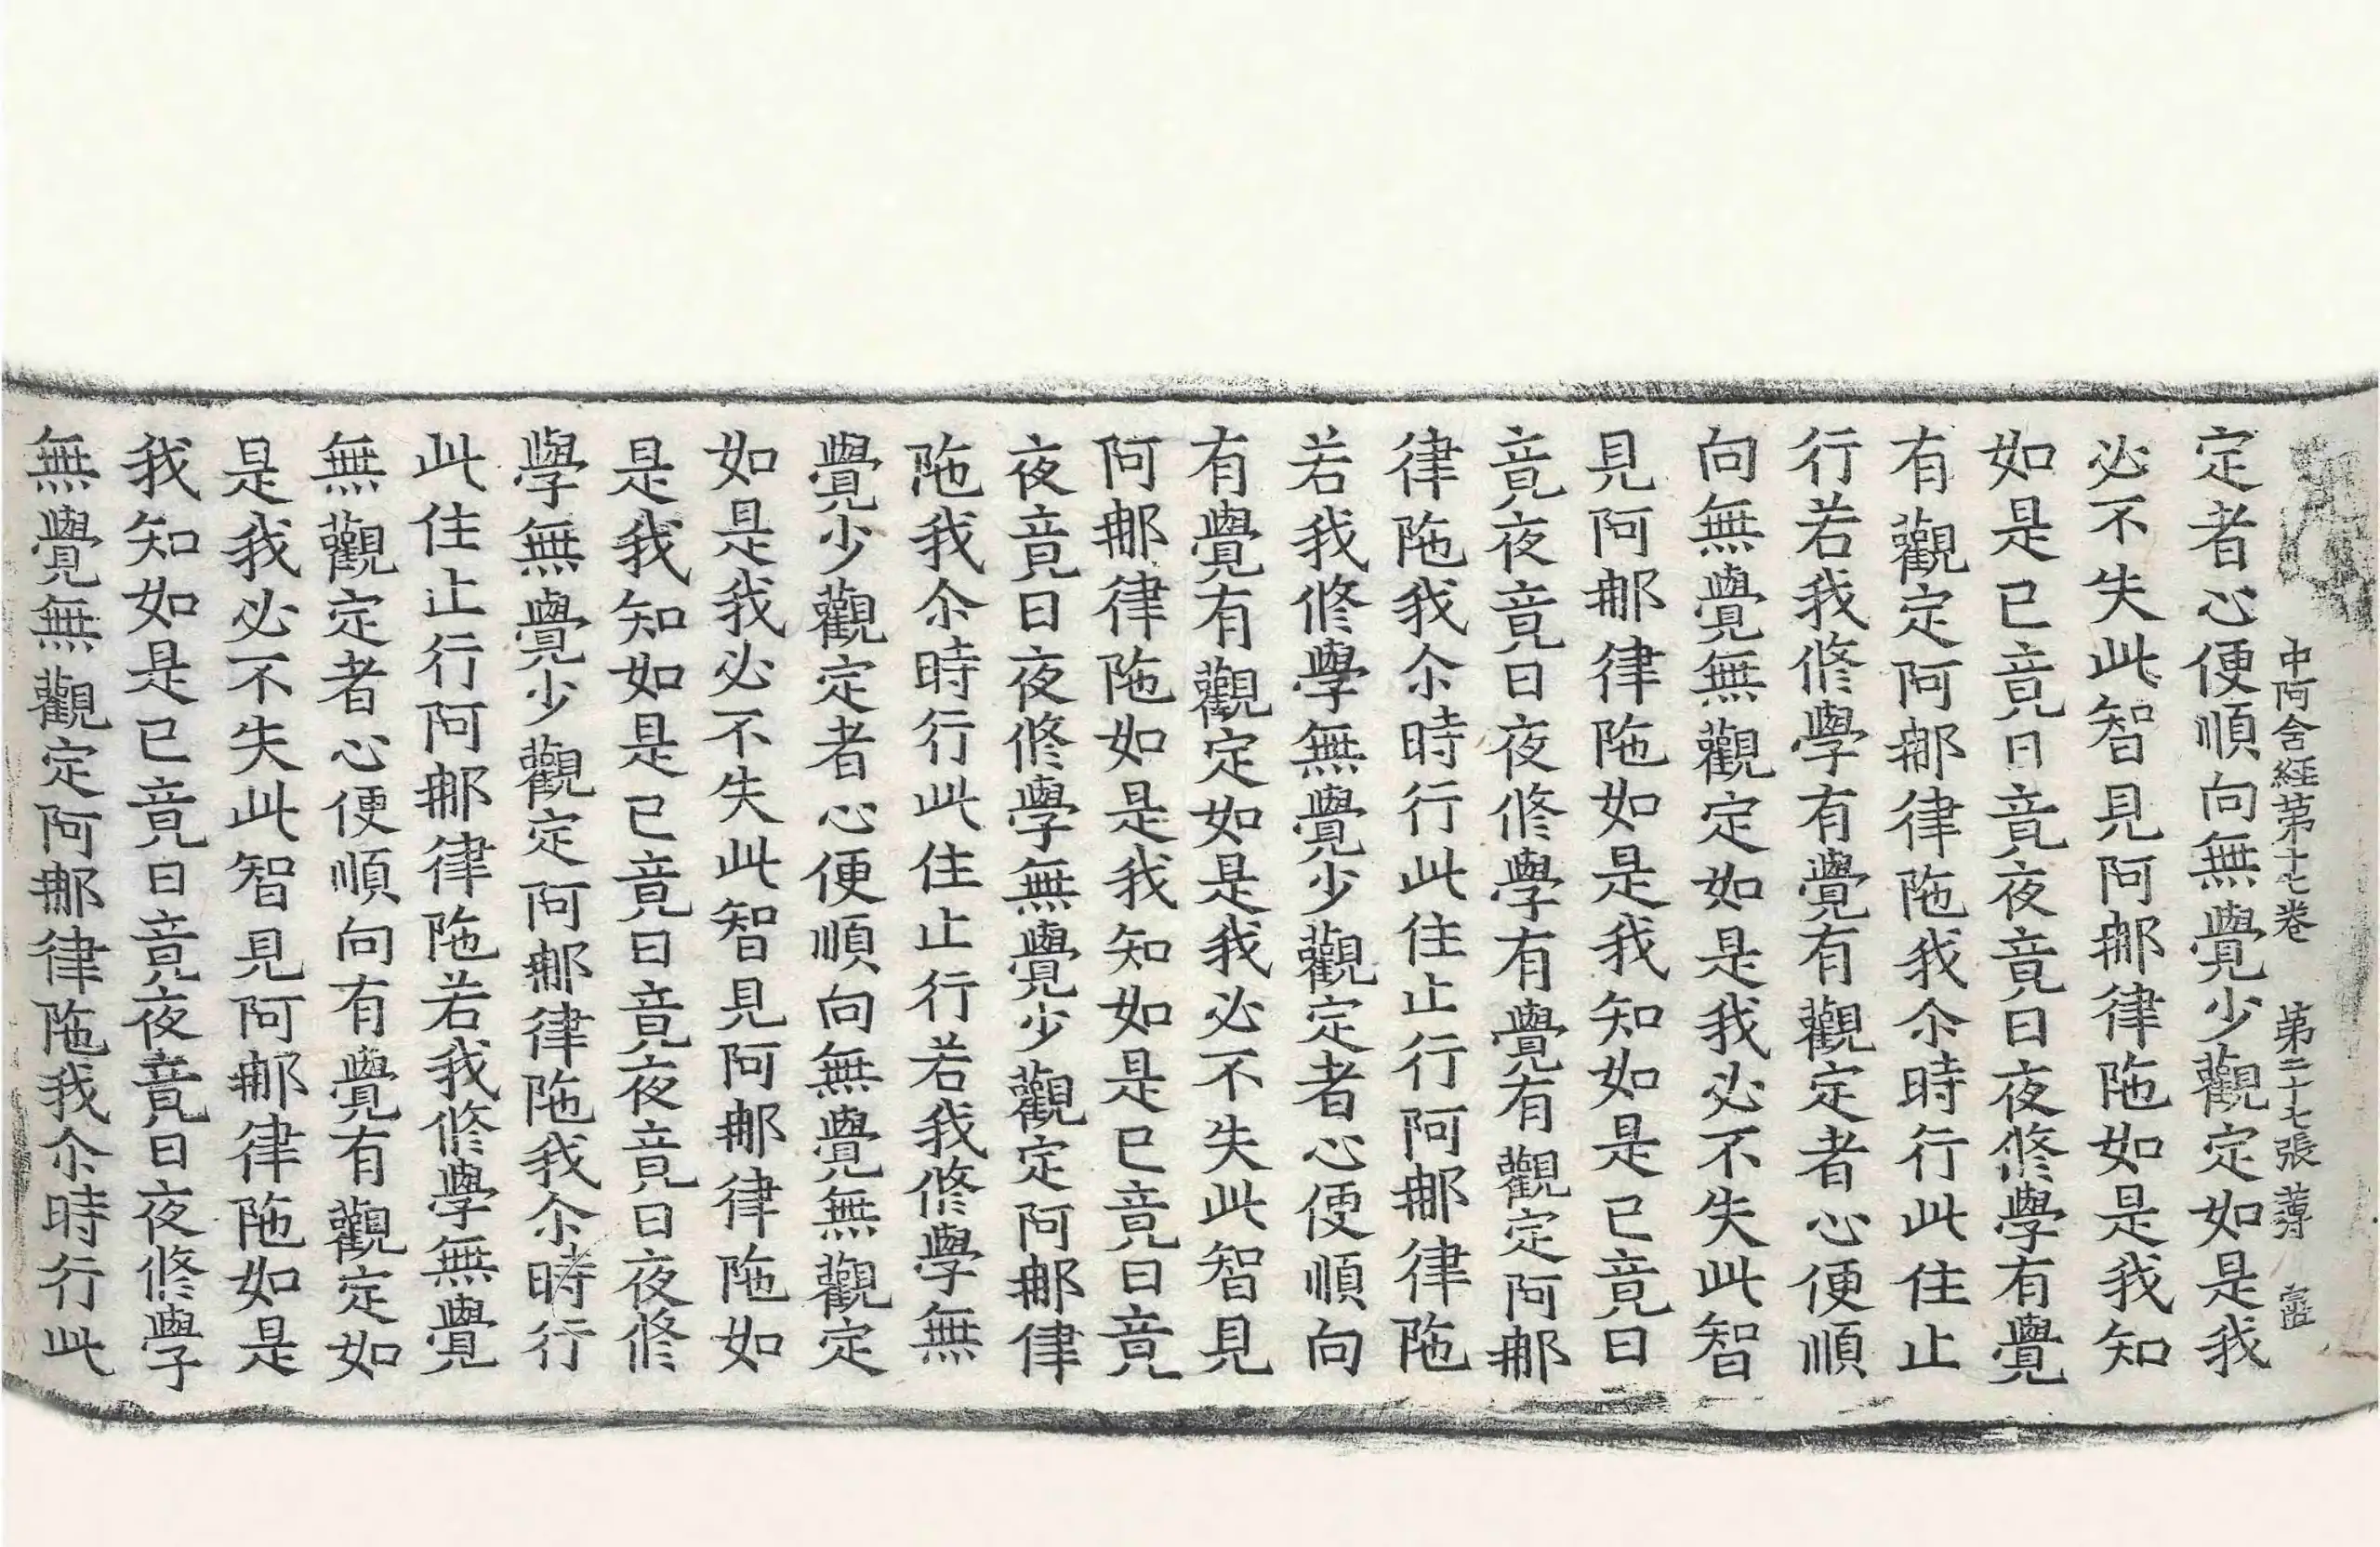 中阿含経第十七卷 第二十七張
定者心便順向無覺少觀定如是我
必不失此智見阿那律陁如是我知
如是已竟日竟夜竟日夜修學有覺
有觀定阿那律陁我尒時行此住止
行若我修學有覺有觀定者心便順
向無覺無觀定如是我必不失此智
見阿那律陁如是我知如是已竟日
竟夜竟日夜修學有覺有觀定阿那
律陁我尒時行此住止行阿那律陁
若我修學無覺少觀定者心便順向
有覺有觀定如是我必不失此智見
阿那律陁如是我知如是已竟日竟
夜竟日夜修學無覺少觀定阿那律
陁我尒時行此住止行若我修學無
覺少觀定者心便順向無覺無觀定
如是我必不失此智見阿那律陁如
是我知如是已竟日竟夜竟日夜修
學無覺少觀定阿那律陁我尒時行
此住止行阿那律陁若我修學無覺
無觀定者心便順向有覺有觀定如
是我必不失此智見阿那律陁如是
我知如是已竟日竟夜竟日夜修學
無覺無觀定阿那律陁我尒時行此